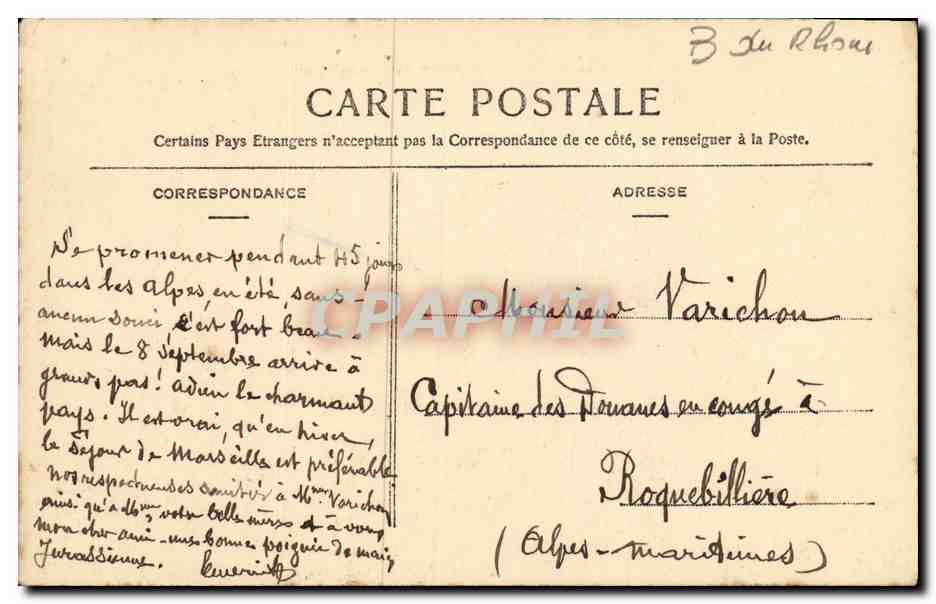 B du Rhone
CARTE POSTALE
Certains Pays Etrangers n'acceptant pas la Correspondance de ce côté, se renseigner à la Poste.
CORRESPONDANCE
Se promener pendant 45 jours
dans les Alpes en été, sans
aucun souci c'est fort beau
mais le 8 septembre arrive à
grands pas! adieu le charmant
pays. Il est vrai, qu'en hiver,
le séjour de Marseille est préférable
nos respectueuses amitiés à Mme Varichon
ainsi qu'à Mme votre belle mère et à vous
mon cher ami une bonne poignée de main
Jurassienne.
ADRESSE
Monsieur Varichon
Capitaine des Douanes en congé à
Roquebillière
(Alpes-maritimes)
CPAPHIL